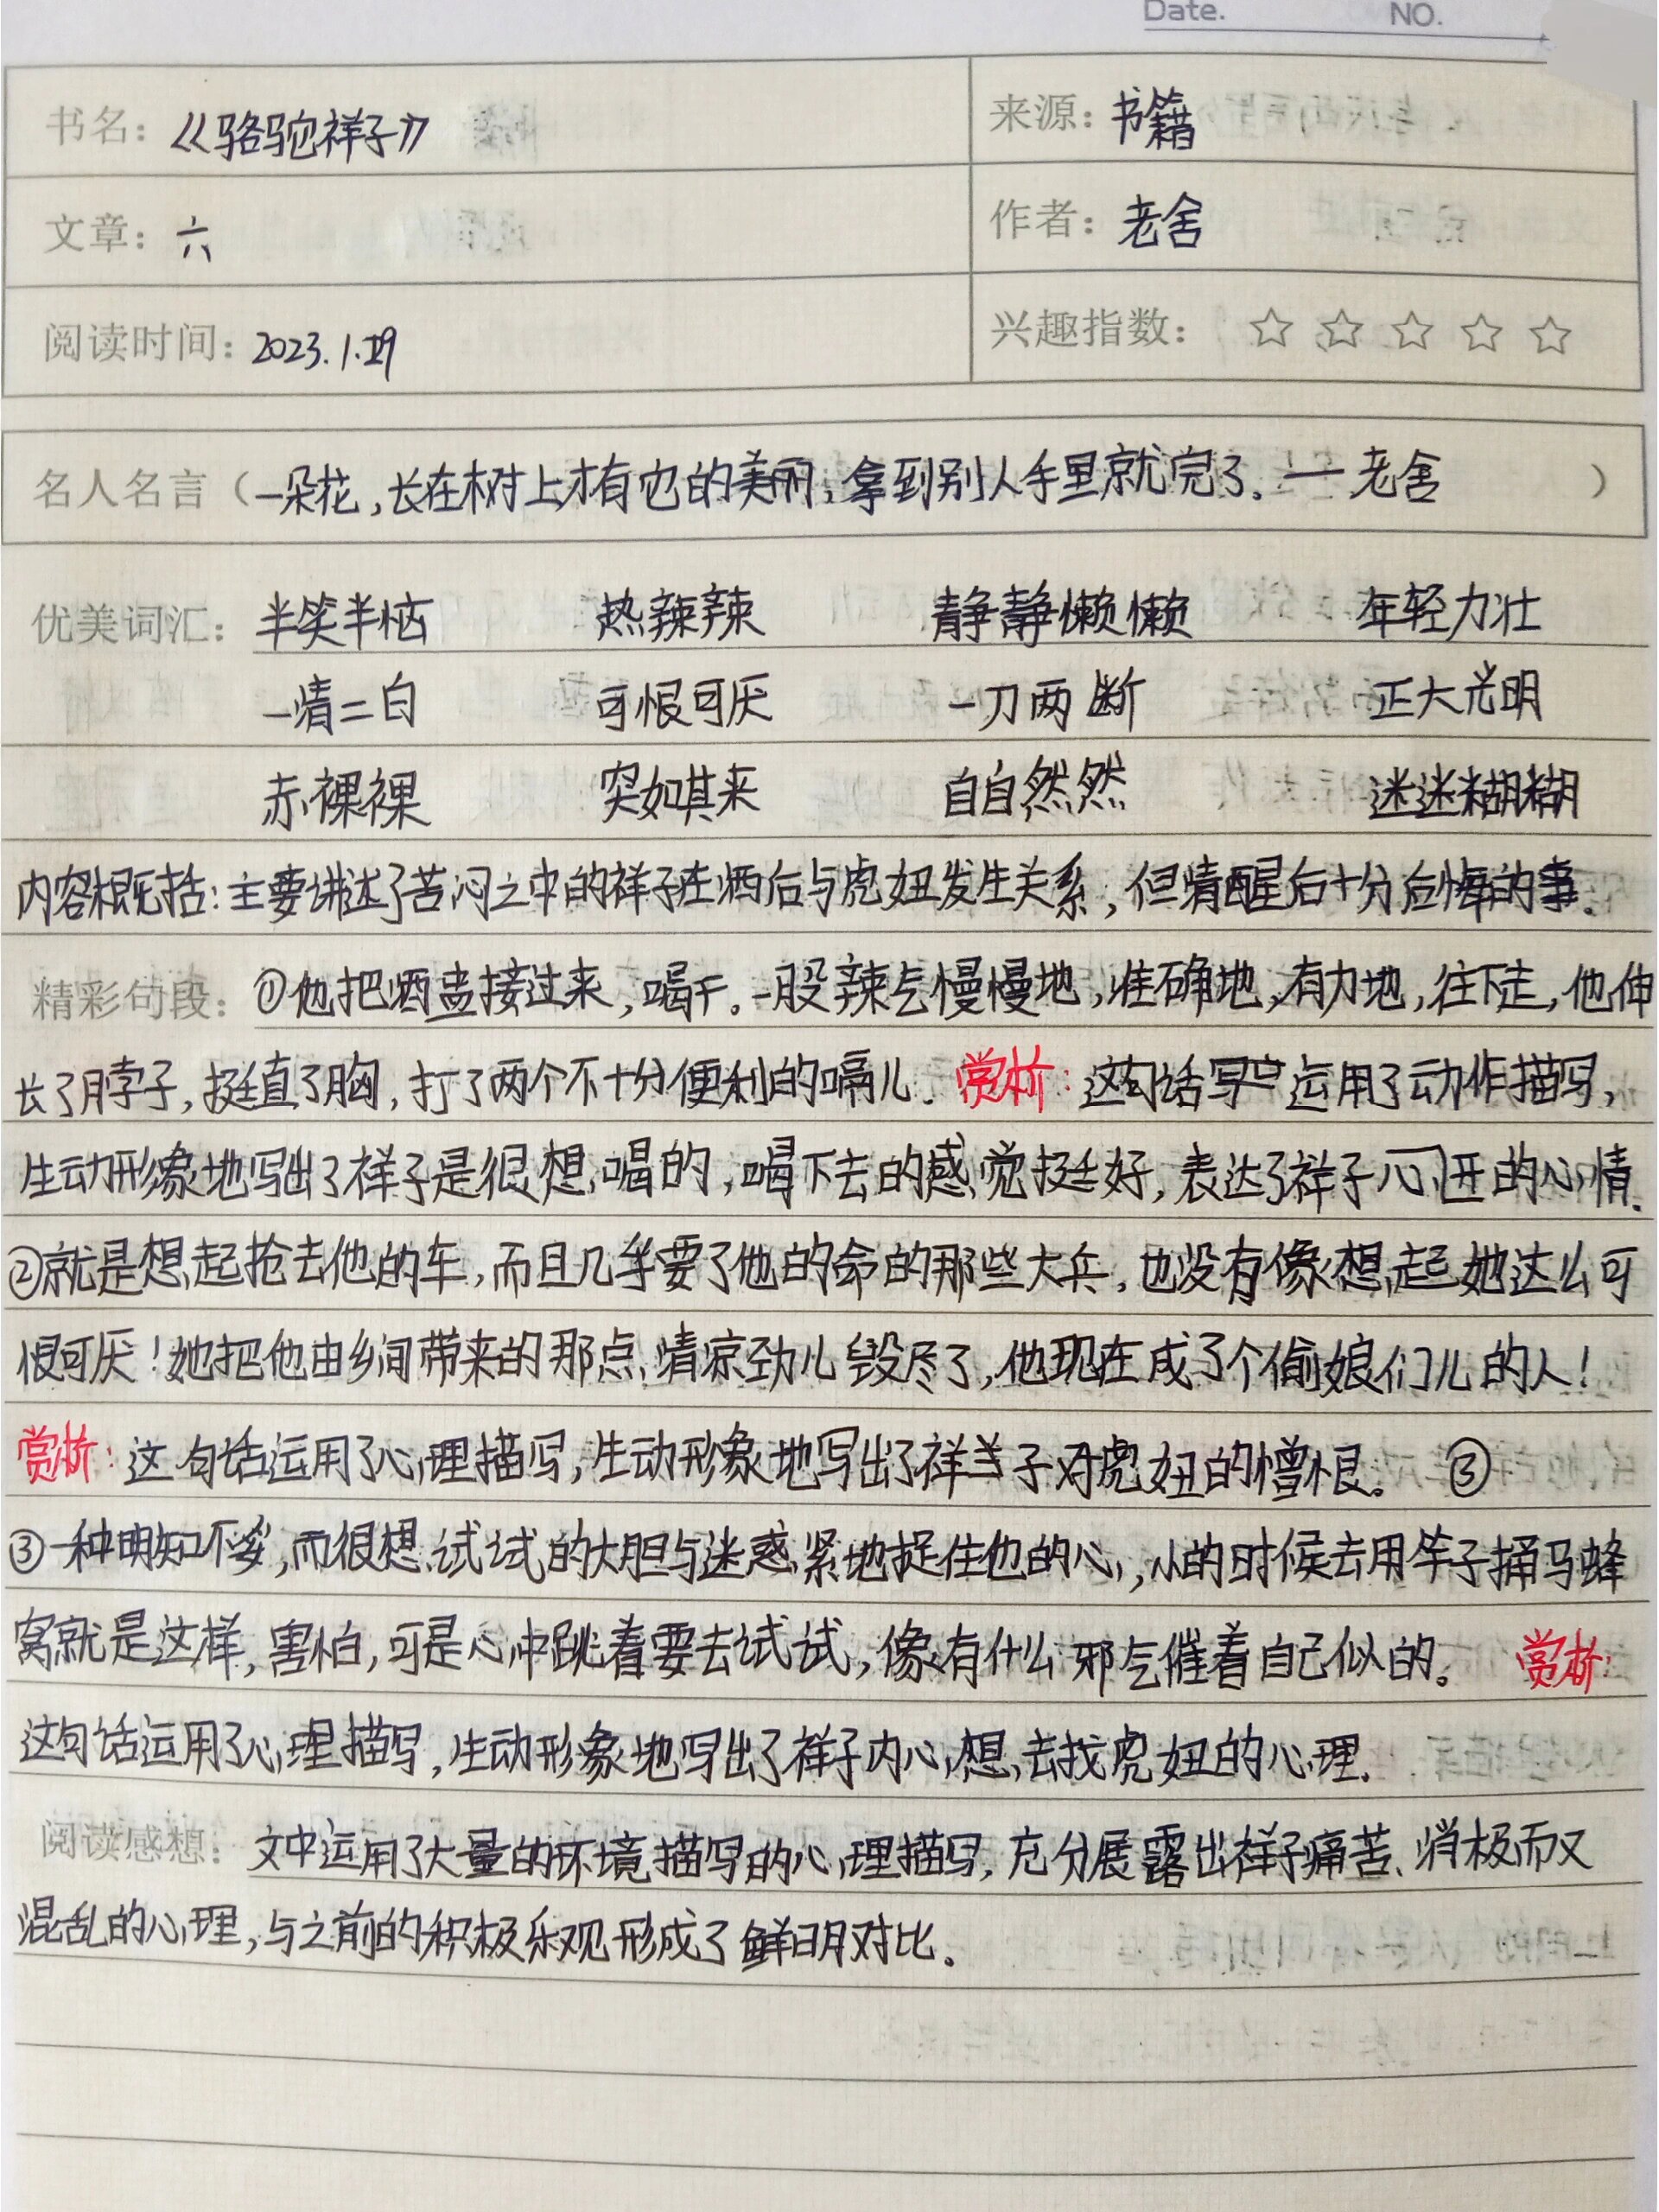 Date. NO.
书名：《骆驼祥子》 来源：书籍
文章：六 作者：老舍
阅读时间：2023.1.19 兴趣指数：☆ ☆ ☆ ☆ ☆
名人名言（一朵花，长在树上才有它的美丽，拿到别人手里就完了。— 老舍）
优美词汇：半笑半恼 热辣辣 静静懒懒 年轻力壮
一清二白 可恨可厌 一刀两断 正大光明
赤裸裸 突如其来 自自然然 迷迷糊糊
内容概括：主要讲述了苦闷之中的祥子在酒后与虎妞发生关系，但清醒后十分后悔的事.
精彩句段：①他把酒盅接过来，喝干。一股辣气慢慢地，准确地，有力地，往下走，他伸
长了脖子，挺直了胸，打了两个不十分便利的嗝儿. 赏析：这句话写 运用了动作描写，
生动形象地写出了祥子是很想喝的，喝下去的感觉挺好，表达了祥子 的心情.
②就是想起抢去他的车，而且几乎要了他的命的那些大兵，也没有像想起她这么可
恨可厌！她把他由乡间带来的那点清凉劲儿毁尽了，他现在成了个偷娘们儿的人！
赏析：这句话运用了心理描写，生动形象地写出了祥子对虎妞的憎恨。 ③
③一种明知不妥，而很想试试的大胆与迷惑紧地捉住他的心，小的时候去用竿子捅马蜂
窝就是这样，害怕，可是心中跳着要去试试，像有什么邪气催着自己似的。 赏析：
这句话运用了心理描写，生动形象地写出了祥子内心想去找虎妞的心理.
阅读感想：文中运用了大量的环境描写的心理描写，充分展露出祥子痛苦、消极而又
混乱的心理，与之前的积极乐观形成了鲜明对比。